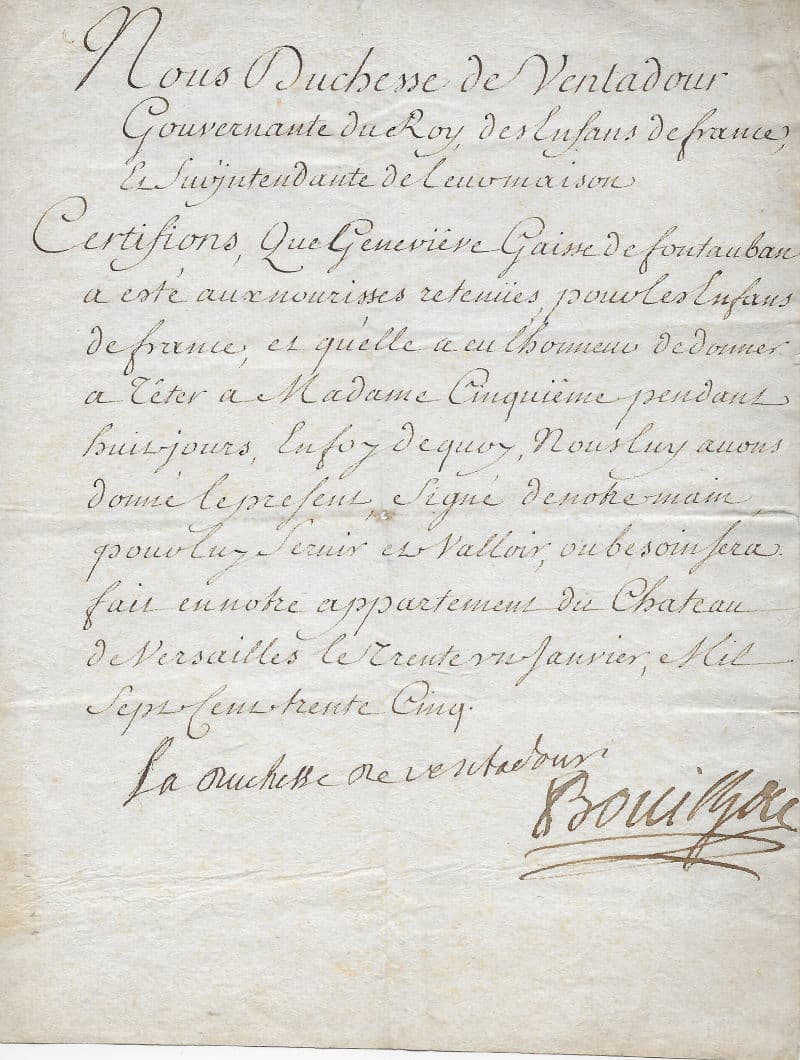 Nous Duchesse de Ventadour
Gouvernante du Roy, des Enfans de france,
Et Surjntendante de leur maison
Certifions, Que Geneviéve Gaisse de fontauban
a esté aux nourisses retenües, pour les Enfans
de france, et qu'elle a eu l'honneur de donner
a Téter a Madame Cinquiéme pendant
huit jours, En foy de quoy, Nous luy avons
donné le present, Signé de notre main,
pour luy Servir et Valloir, ou besoin sera.
fait en notre appartement du Chateau
de Versailles le Trente un Janvier, Mil
Sept Cent trente Cinq.
la duchesse de ventadour